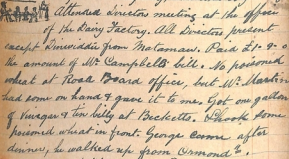 Attended Directors meeting at the office
of the Dairy Factory. All Directors present
except Dinwiddie from Matamau. Paid £1-9-0
the amount of Mr Campbell's bill. No poisoned
wheat at Road Board office, but Mr Martin
had some on hand & gave it to me. Got one gallon
of Vinegar & tin billy at Becketts. I took some
poisoned wheat in front. George came after
dinner, he walked up from Ormond